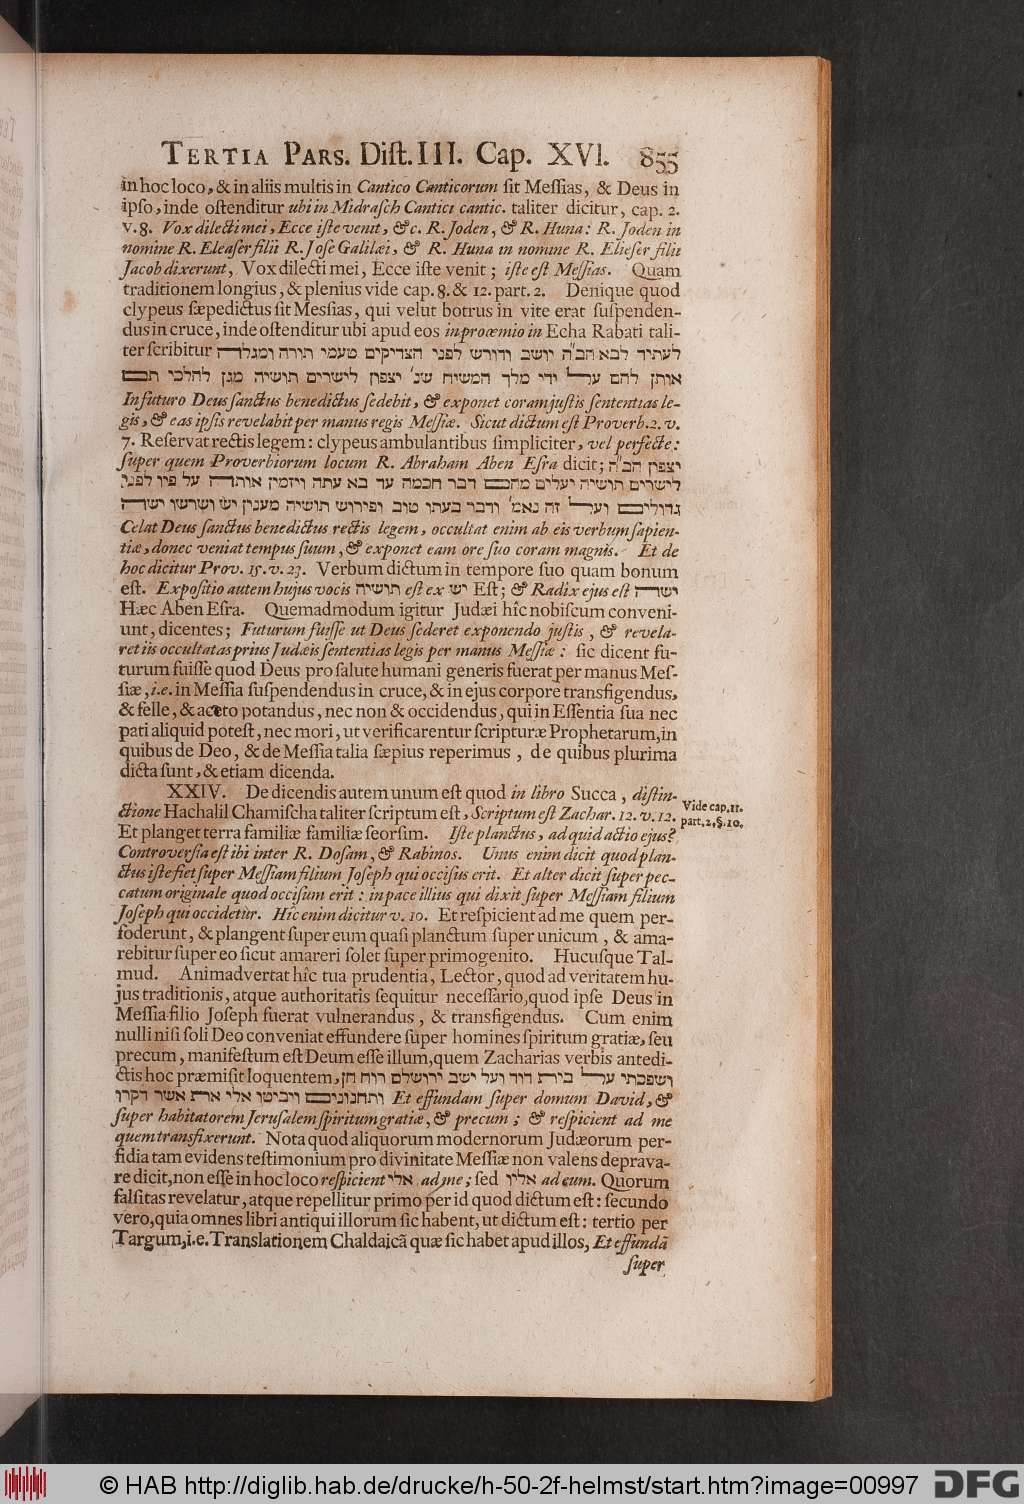 TERTIA PARS. Diſt. III. Cap. XVI. 855
in hoc loco, & in aliis multis in Cantico Canticorum ſit Meſſias, & Deus in
ipſo, inde oſtenditur ubi in Midraſch Cantici cantic. taliter dicitur, cap. 2.
v. 8. Vox dilecti mei, Ecce iſte venit, &c. R. Joden, & R. Huna: R. Joden in
nomine R. Eleaſer filii R. Joſe Galilæi, & R. Huna in nomine R. Elieſer filii
Jacob dixerunt, Vox dilecti mei, Ecce iſte venit; iſte eſt Meſſias. Quam
traditionem longius, & plenius vide cap. 8. & 12. part. 2. Denique quod
clypeus ſæpedictus ſit Meſsias, qui velut botrus in vite erat ſuſpenden-
dus in cruce, inde oſtenditur ubi apud eos in proœmio in Echa Rabati tali-
ter ſcribitur לעתיד לבא הב״ה יושב ודורש לפני הצדיקים טעמי תורה ומגלה
אותן להם על ידי מלך המשיח שנ׳ יצפון לישרים תושיה מגן להלכי תם
In futuro Deus ſanctus benedictus ſedebit, & exponet coram juſtis ſententias le-
gis, & eas ipſis revelabit per manus regis Meſſiæ. Sicut dictum eſt Proverb. 2. v.
7. Reſervat rectis legem: clypeus ambulantibus ſimpliciter, vel perfecte:
ſuper quem Proverbiorum locum R. Abraham Aben Eſra dicit; יצפין הב״ה
לישרים תושיה יעלים מהם דבר חכמה עד בא עתה ויזמין אותה על פיו לפני
גדולים ועל זה נאמ׳ ודבר בעתו טוב ופירוש תושיה מענין יש ושרשו ישה
Celat Deus ſanctus benedictus rectis legem, occultat enim ab eis verbum ſapien-
tiæ, donec veniat tempus ſuum, & exponet eam ore ſuo coram magnis. Et de
hoc dicitur Prov. 15. v. 23. Verbum dictum in tempore ſuo quam bonum
eſt. Expoſitio autem hujus vocis תושיה eſt ex יש Eſt; & Radix ejus eſt ישה
Hæc Aben Eſra. Quemadmodum igitur Judæi hîc nobiſcum conveni-
unt, dicentes; Futurum fuiſſe ut Deus ſederet exponendo juſtis, & revela-
ret iis occultatas prius Judæis ſententias legis per manus Meſſiæ: ſic dicent fu-
turum fuiſſe quod Deus pro ſalute humani generis fuerat per manus Meſ-
ſiæ, i.e. in Meſſia ſuſpendendus in cruce, & in ejus corpore transfigendus,
& felle, & aceto potandus, nec non & occidendus, qui in Eſſentia ſua nec
pati aliquid poteſt, nec mori, ut verificarentur ſcripturæ Prophetarum, in
quibus de Deo, & de Meſſia talia ſæpius reperimus, de quibus plurima
dicta ſunt, & etiam dicenda.
XXIV. De dicendis autem unum eſt quod in libro Succa, diſtin-
ctione Hachalil Chamiſcha taliter ſcriptum eſt, Scriptum eſt Zachar. 12. v. 12.
Vide cap. 11.
part. 2. §. 10.
Et planget terra familiæ familiæ ſeorſim. Iſte planctus, ad quid actio ejus?
Controverſia eſt ibi inter R. Doſam, & Rabinos. Unus enim dicit quod plan-
ctus iſte fiet ſuper Meſſiam filium Joſeph qui occiſus erit. Et alter dicit ſuper pec-
catum originale quod occiſum erit: in pace illius qui dixit ſuper Meſſiam filium
Joſeph qui occidetur. Hîc enim dicitur v. 10. Et reſpicient ad me quem per-
foderunt, & plangent ſuper eum quaſi planctum ſuper unicum, & ama-
rebitur ſuper eo ſicut amareri ſolet ſuper primogenito. Hucuſque Tal-
mud. Animadvertat hîc tua prudentia, Lector, quod ad veritatem hu-
jus traditionis, atque authoritatis ſequitur neceſſario, quod ipſe Deus in
Meſſia filio Joſeph fuerat vulnerandus, & transfigendus. Cum enim
nulli niſi ſoli Deo conveniat effundere ſuper homines ſpiritum gratiæ, ſeu
precum, manifeſtum eſt Deum eſſe illum, quem Zacharias verbis antedi-
ctis hoc præmiſit loquentem, ושפכתי על בית דוד ועל ישב ירושלם רוח חן
ותחנונים והביטו אלי את אשר דקרו Et effundam ſuper domum David, &
ſuper habitatorem Jeruſalem ſpiritum gratiæ, & precum; & reſpicient ad me
quem transfixerunt. Nota quod aliquorum modernorum Judæorum per-
fidia tam evidens teſtimonium pro divinitate Meſſiæ non valens deprava-
re dicit, non eſſe in hoc loco reſpicient אלי ad me; ſed אליו ad eum. Quorum
falſitas revelatur, atque repellitur primo per id quod dictum eſt: ſecundo
vero, quia omnes libri antiqui illorum ſic habent, ut dictum eſt: tertio per
Targum, i.e. Translationem Chaldaicã quæ ſic habet apud illos, Et effundã
ſuper
© HAB http://diglib.hab.de/drucke/h-50-2f-helmst/start.htm?image=00997 DFG